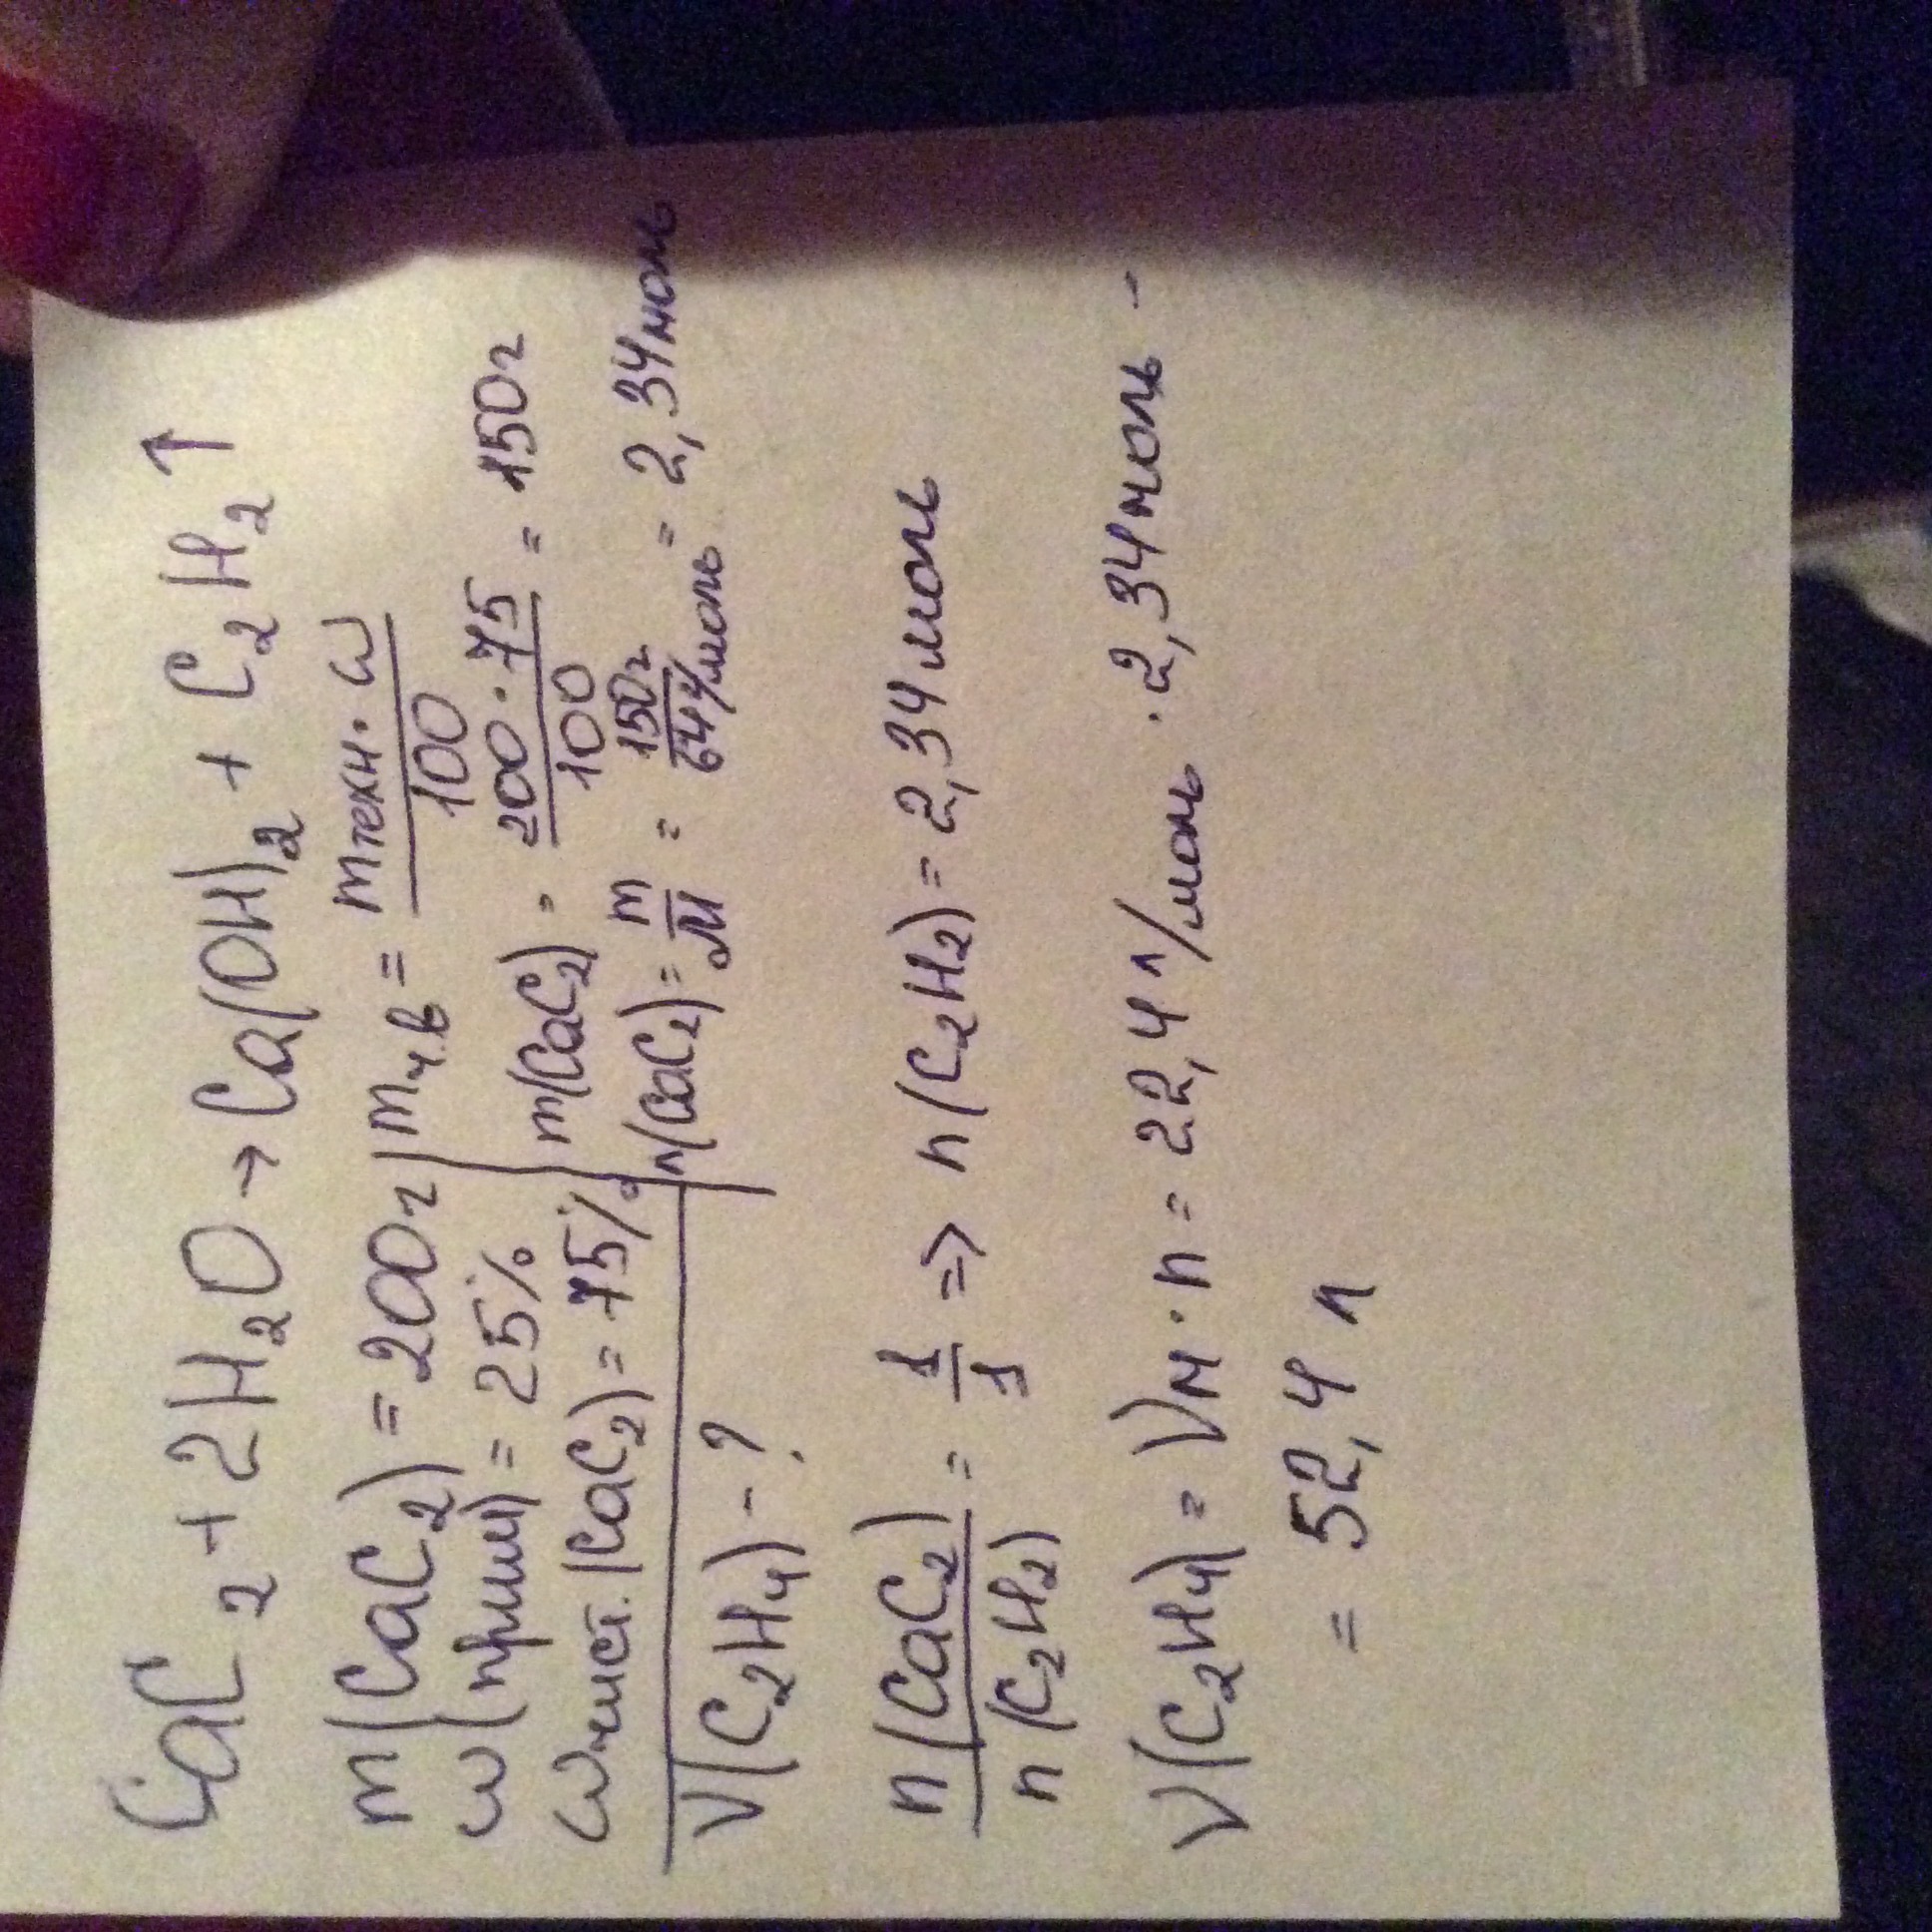 CaC₂ + 2H₂O → Ca(OH)₂ + C₂H₂ ↑
m(CaC₂) = 200г
ω(прим) = 25%
ωчист.(CaC₂) = 75%
V(C₂H₄) - ?
mч.в = mтехн · ω / 100
m(CaC₂) = 200 · 75 / 100 = 150г
n(CaC₂) = m / M = 150г / 64г/моль = 2,34моль
n(CaC₂) / n(C₂H₂) = 1 / 1 => n(C₂H₂) = 2,34моль
V(C₂H₄) = Vм · n = 22,4 л/моль · 2,34моль -
= 52,4 л